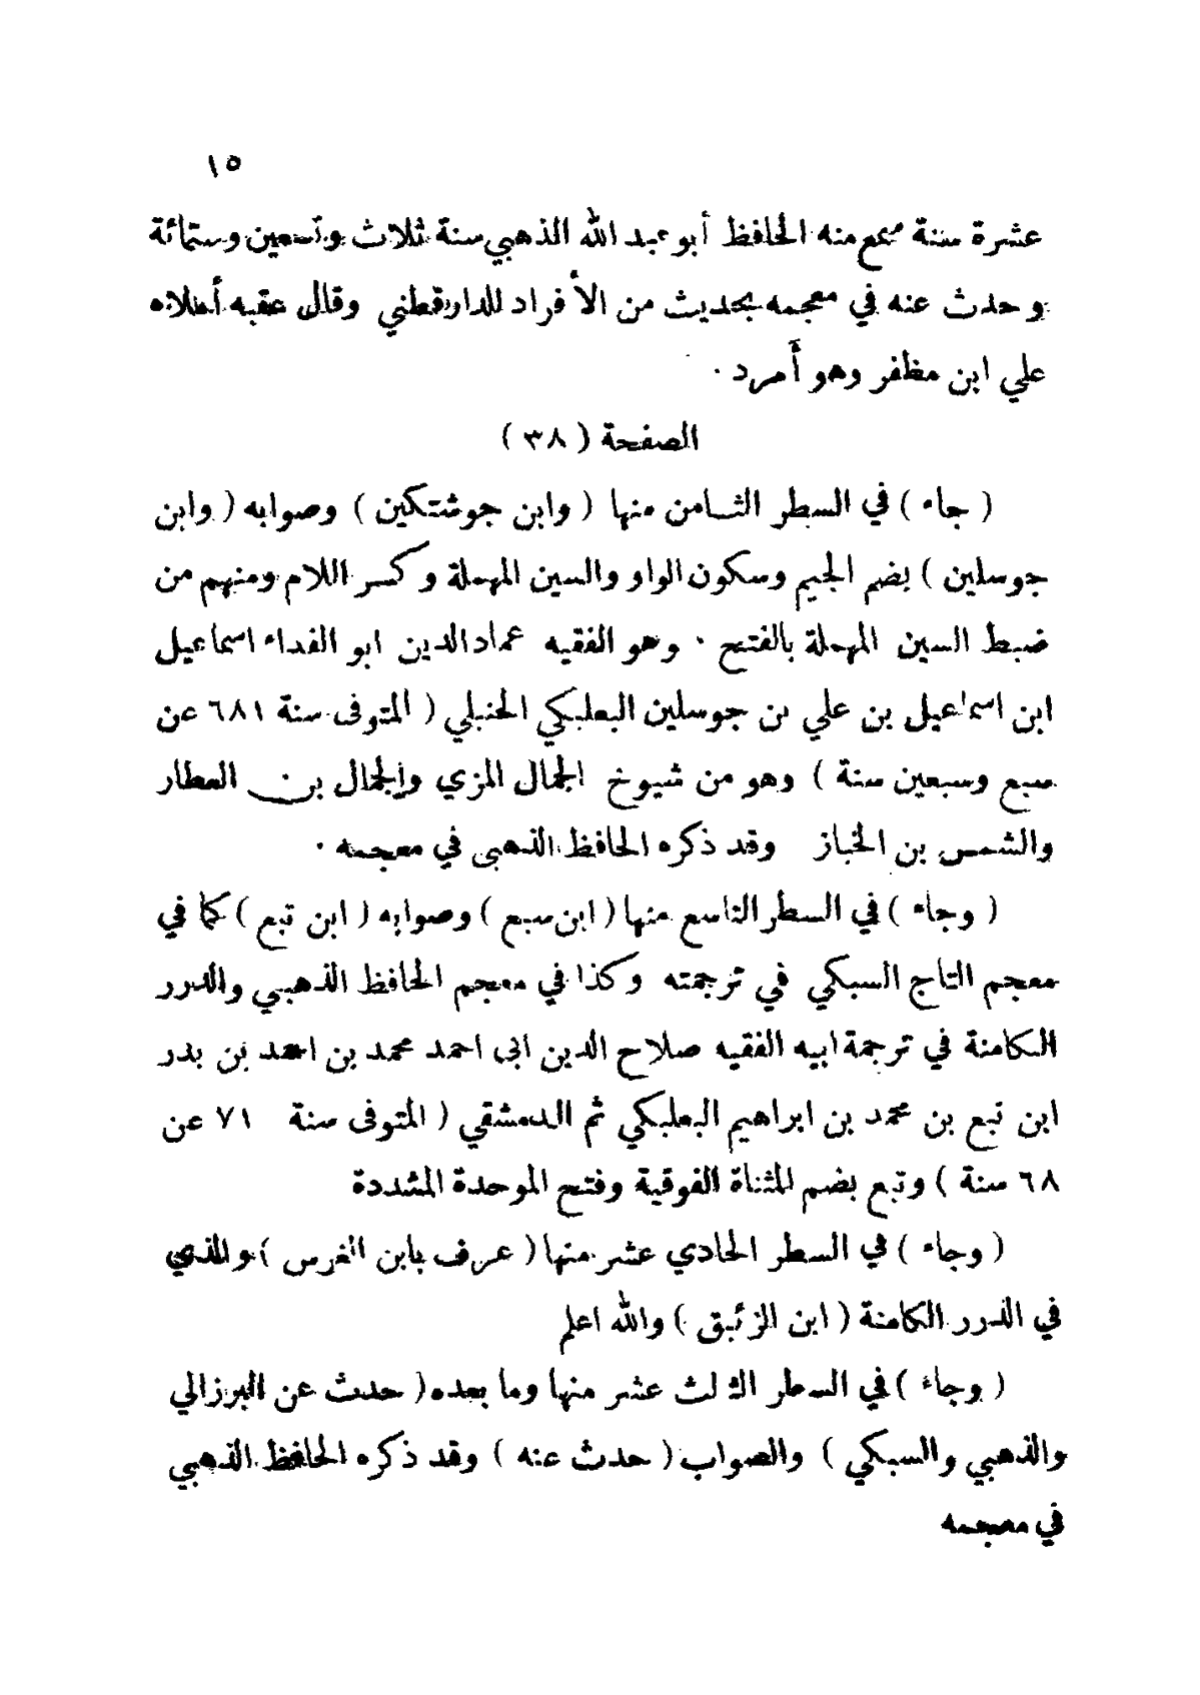 ١٥
عشرة سنة سمع منه الحافظ أبو عبد الله الذهبي سنة ثلاث وتسعين وستمائة
و حدث عنه في معجمه بحديث من الأفراد للدارقطني وقال عقبه أملاه
علي ابن مظفر وهو أمرد .
الصفحة ( ٣٨ )
( جاء ) في السطر الثامن منها ( وابن جوشتكين ) وصوابه ( وابن
جوسلين ) بضم الجيم وسكون الواو والسين المهملة وكسر اللام ومنهم من
ضبط السين المهملة بالفتح . وهو الفقيه عماد الدين ابو الفداء اسماعيل
ابن اسماعيل بن علي بن جوسلين البعلبكي الحنبلي ( المتوفى سنة ٦٨١ عن
سبع وسبعين سنة ) وهو من شيوخ الجمال المزي والجمال بن العطار
والشمس بن الخباز وقد ذكره الحافظ الذهبي في معجمه .
( وجاء ) في السطر التاسع منها ( ابن سبع ) وصوابه ( ابن تبع ) كما في
معجم التاج السبكي في ترجمته وكذا في معجم الحافظ الذهبي والدرر
الكامنة في ترجمة ابيه الفقيه صلاح الدين ابى احمد محمد بن احمد بن بدر
ابن تبع بن محمد بن ابراهيم البعلبكي ثم الدمشقي ( المتوفى سنة ٧١ عن
٦٨ سنة ) وتبع بضم المثناة الفوقية وفتح الموحدة المشددة
( وجاء ) في السطر الحادي عشر منها ( عرف بابن الغرس ) والذي
في الدرر الكامنة ( ابن الزئبق ) والله اعلم
( وجاء ) في السطر الثالث عشر منها وما بعده ( حدث عن البرزالي
والذهبي والسبكي ) والصواب ( حدث عنه ) وقد ذكره الحافظ الذهبي
في معجمه